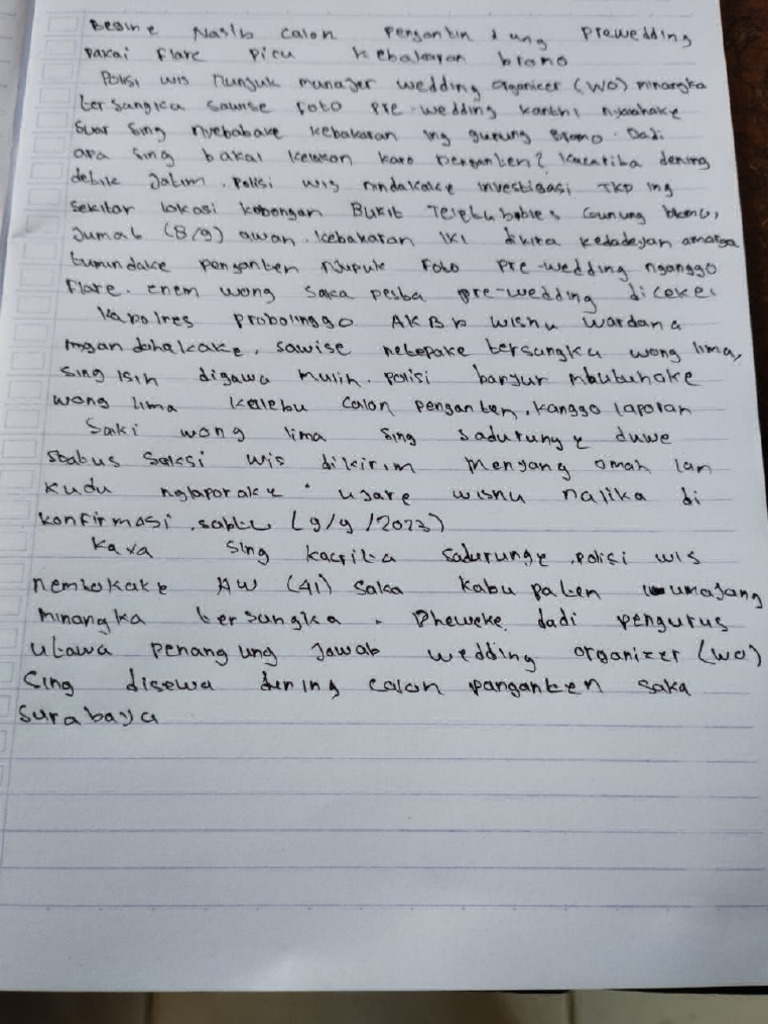 Begine Nasib Calon Pengantin dung Prewedding
pakai Flare Picu Kebakaran bromo
Polisi wis nunjuk manajer wedding organizer (WO) minangka
tersangka sawise Foto Pre-wedding kanthi nyawhake
suar sing nyebabake kebakaran ing gunung Bromo. Dadi
apa sing bakal kelakon karo penganten? Kacarita dening
detik Jatim, Polisi wis nindakake investigasi TKP ing
sekitar lokasi kobongan Bukit Teletubbies Gunung bromo,
Jumat (8/9) awan. Kebakaran iki dikira kedadeyan amarga
tumindake penganten njupuk Foto Pre-wedding nganggo
Flare. enem wong saka pesta pre-wedding dicekel
Kapolres Probolinggo AKBP Wisnu Wardana
ngandhakake, sawise netepake tersangka wong lima,
sing isih digawa mulih. Polisi banjur mbutuhake
wong lima kalebu calon penganten, kanggo laporan
Saki wong lima sing sadurunge duwe
status saksi wis dikirim menyang omah lan
kudu nglaporake " ujare wisnu nalika di
konfirmasi, sabtu (9/9/2023)
Kaya sing kacrita sadurunge, Polisi wis
nemtokake AW (41) saka kabupaten Lumajang
minangka tersangka. Dheweke dadi pengurus
utawa penangung Jawab wedding organizer (WO)
Sing disewa dening calon panganten saka
Surabaya